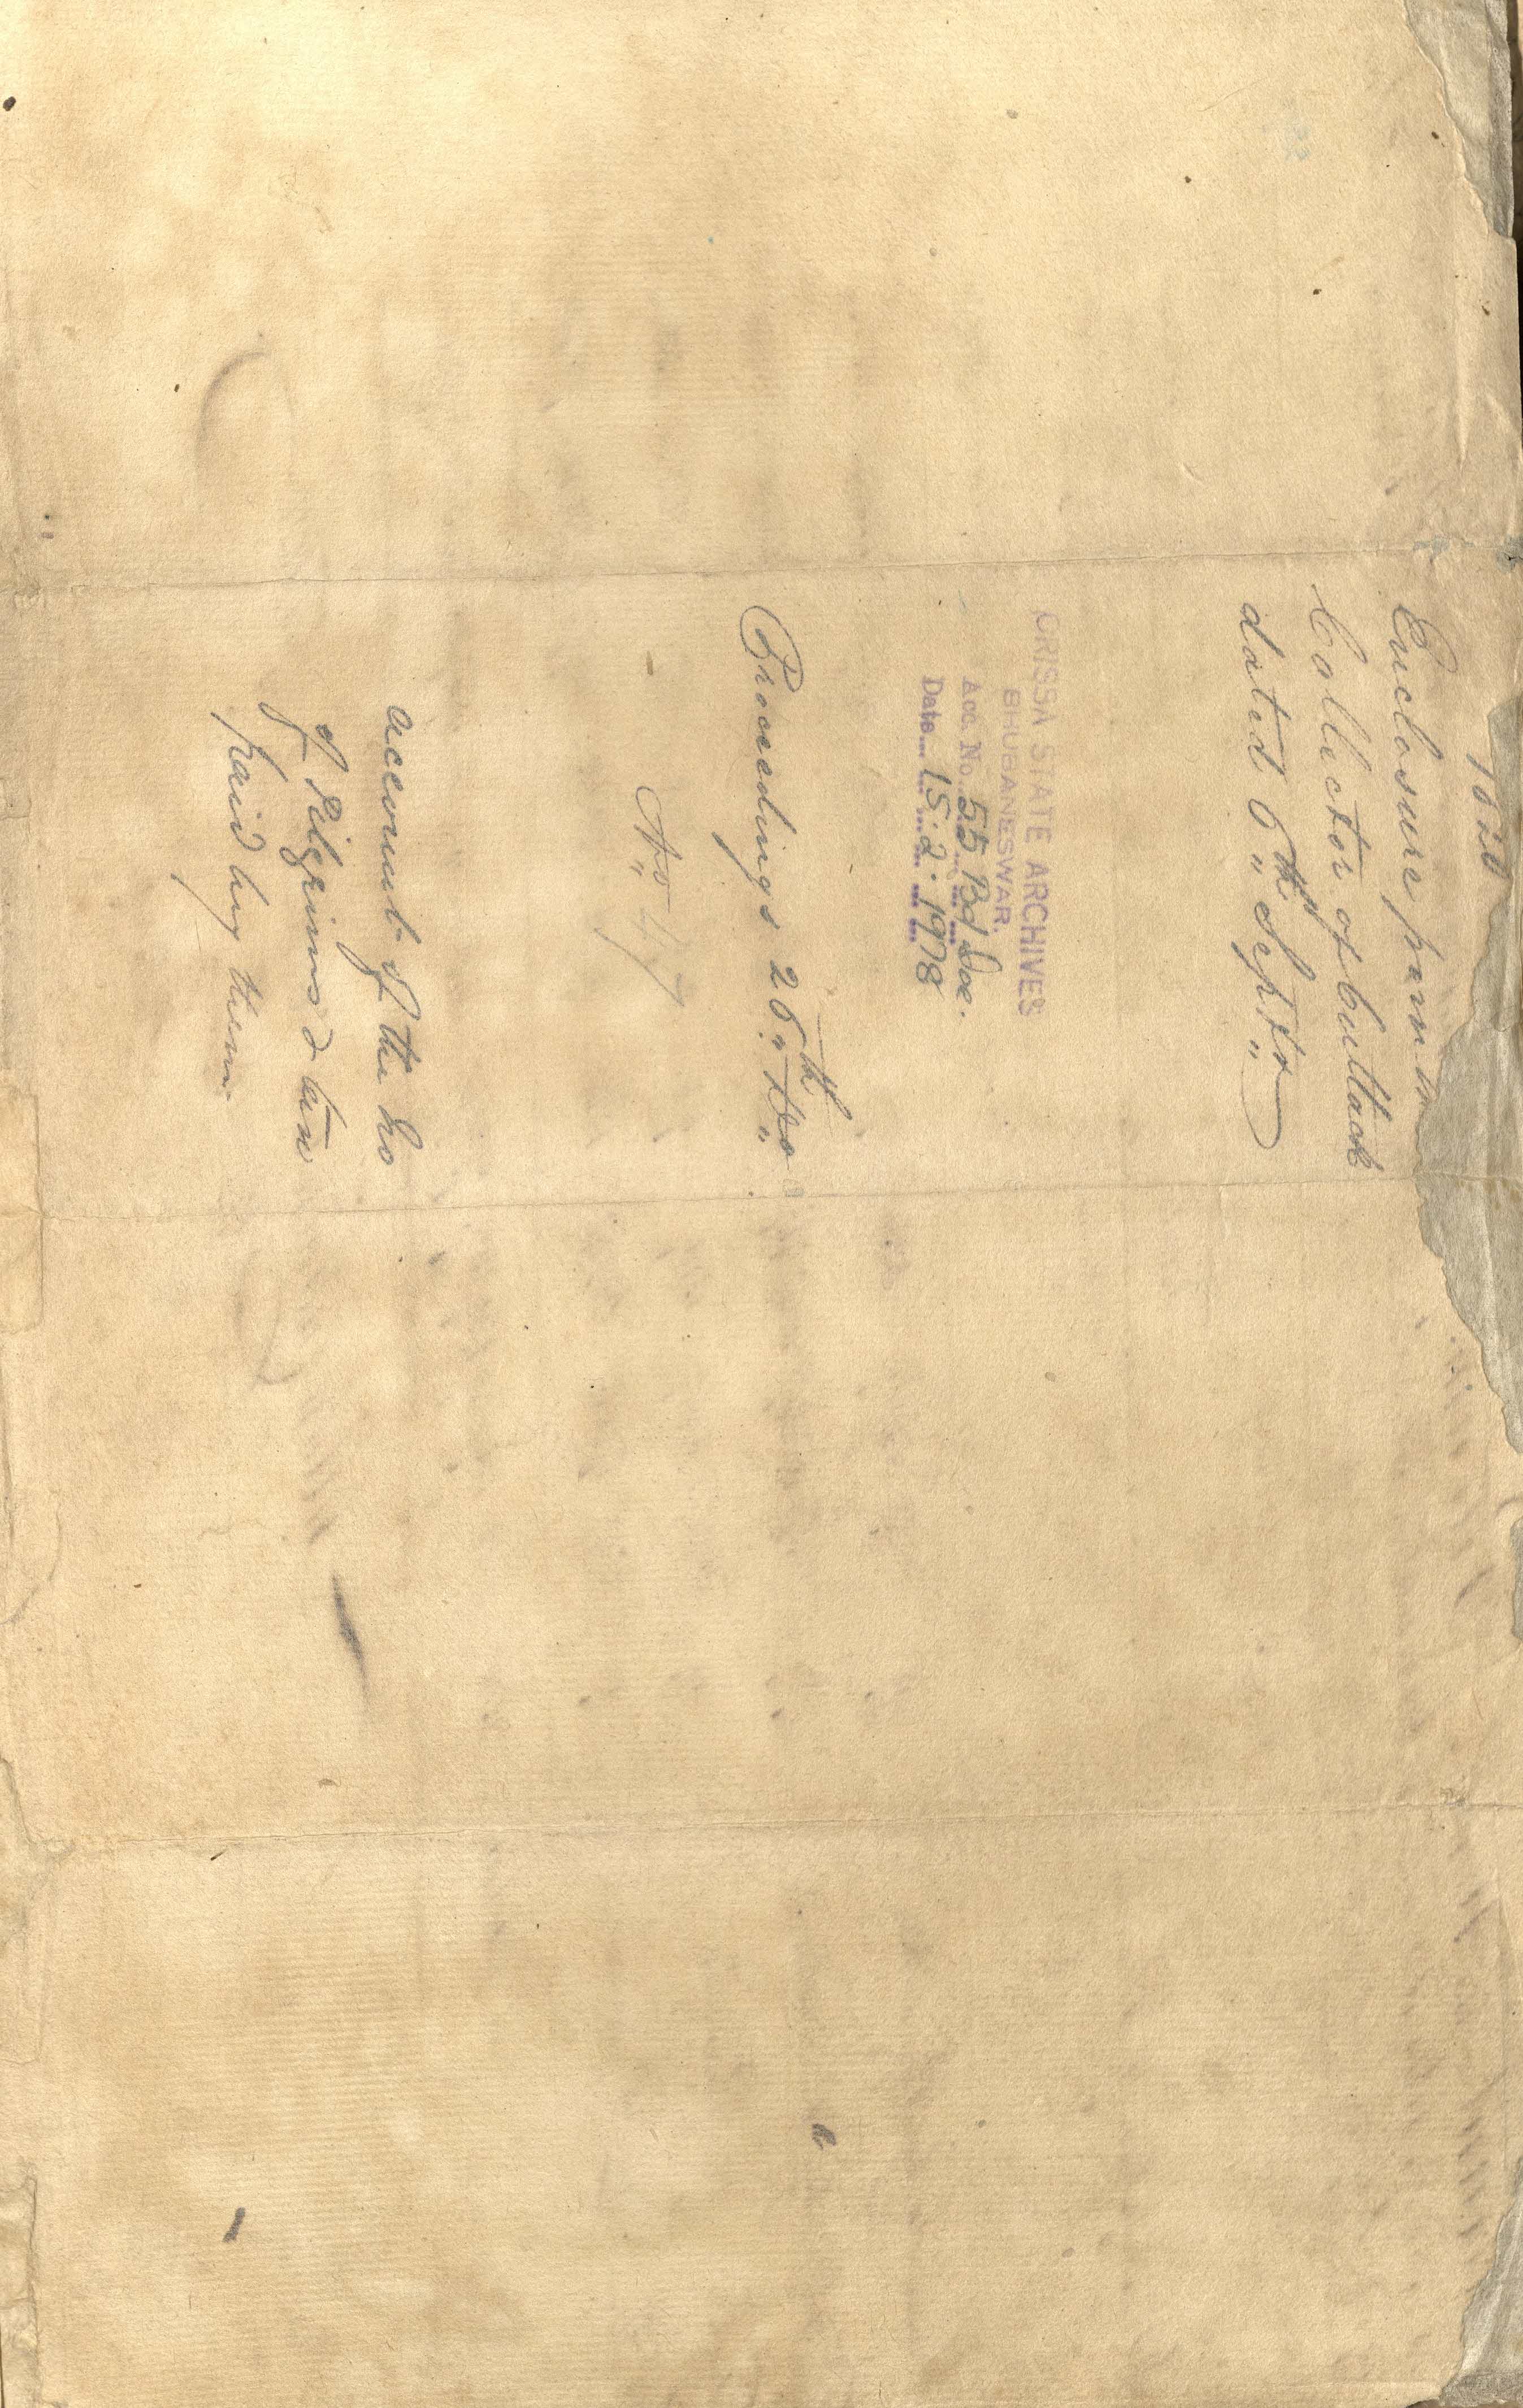 1820
Enclosure from
Collector of Cuttack
dated 6th Septr
ORISSA STATE ARCHIVES
BHUBANESWAR.
Acc. No. 55 Bd/Doc.
Date 15.2.1978
Proceedings 26th Do
No
Account of the No
of Pilgrims & tax
paid by them